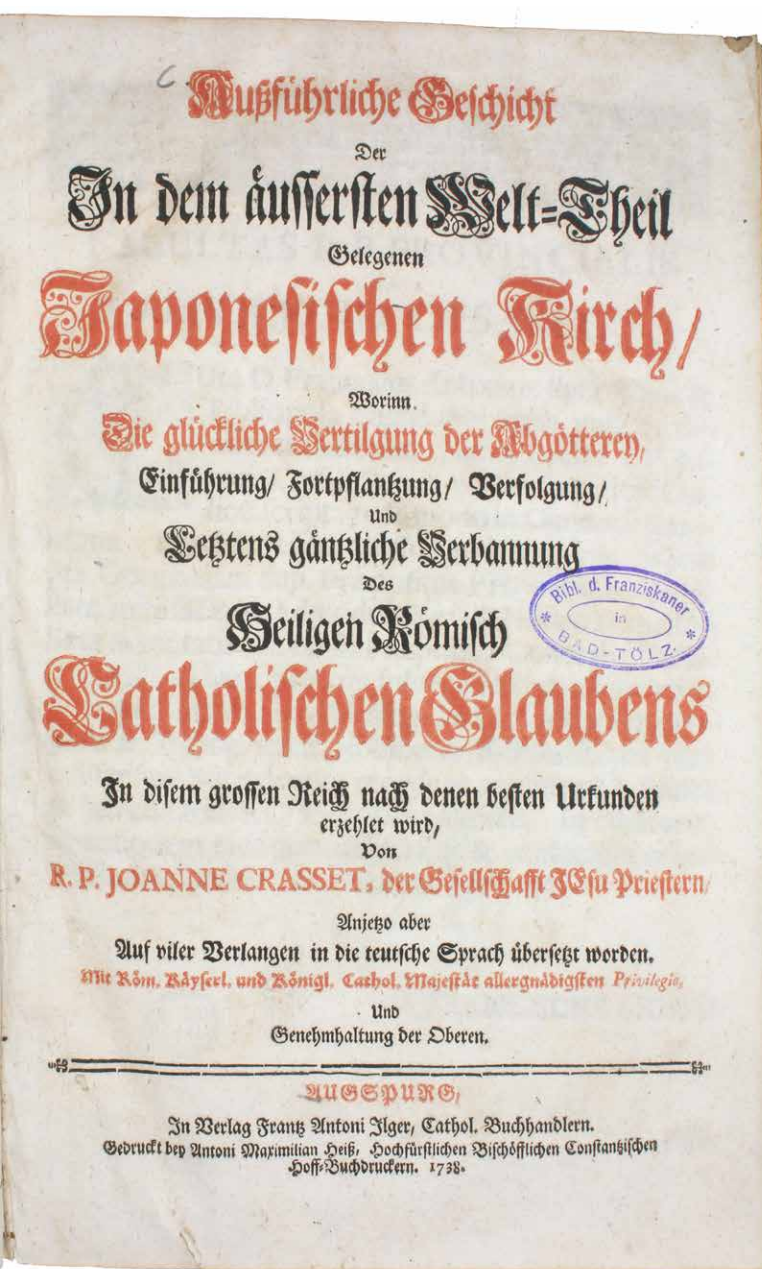 Außführliche Geschicht
Der
In dem äussersten Welt=Theil
Gelegenen
Japonesischen Kirch/
Worinn
Die glückliche Vertilgung der Abgötterey/
Einführung/ Fortpflantzung/ Verfolgung/
Und
Letztens gäntzliche Verbannung
Des
Heiligen Römisch
Catholischen Glaubens
In disem grossen Reich nach denen besten Urkunden
erzehlet wird/
Von
R. P. JOANNE CRASSET, der Gesellschafft JEsu Priestern/
Anjetzo aber
Auf viler Verlangen in die teutsche Sprach übersetzt worden.
Mit Röm. Käyserl. und Königl. Cathol. Majestät allergnädigsten Privilegio,
Und
Genehmhaltung der Oberen.
AUGSPURG/
In Verlag Frantz Antoni Ilger/ Cathol. Buchhandlern.
Gedruckt bey Antoni Maximilian Heiß/ Hochfürstlichen Bischöfflichen Constantzischen
Hoff=Buchdruckern. 1738.
Bibl. d. Franziskaner
in
* BAD-TÖLZ *